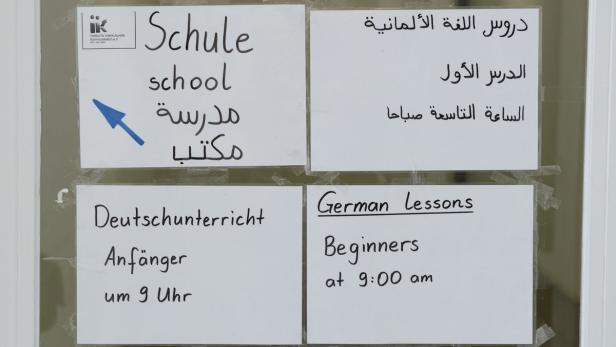 iik
Schule
school
مدرسة
مكتب
دروس اللغة الألمانية
الدرس الأول
الساعة التاسعة صباحا
Deutschunterricht
Anfänger
um 9 Uhr
German lessons
Beginners
at 9:00 am